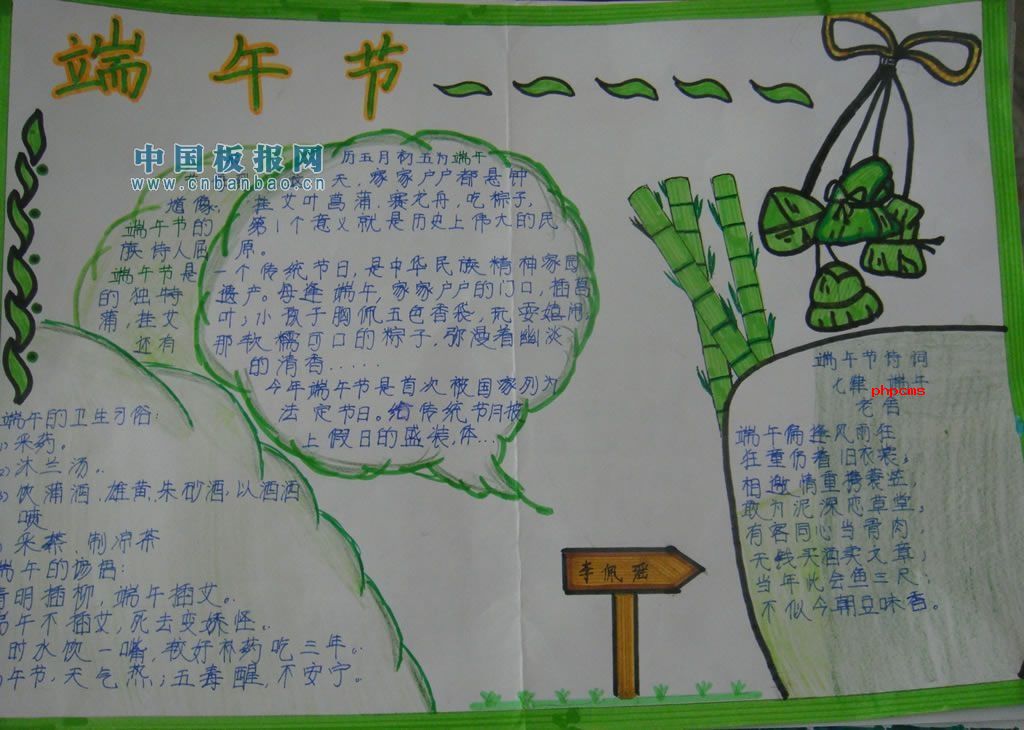 端午节
中国板报网
www.cnbanbao.cn
历五月初五为端午
天，家家户户都悬钟
馗像，挂艾叶菖蒲，赛龙舟，吃粽子，
端午节的 第1个意义就是历史上伟大的民
族诗人屈 原。
端午节是 一个传统节日，是中华民族精神家园
的独特 遗产。每逢端午，家家户户的门口，插菖
蒲，挂艾 叶；小孩子胸佩五色香袋，玩耍嬉闹；
还有 那软糯可口的粽子，弥漫着幽淡
的清香……
今年端午节是首次被国家列为
法定节日。给传统节月被
上假日的盛装，体…
端午的卫生习俗：
采药。
沐兰汤。
饮蒲酒，雄黄，朱砂酒，以酒洒
喷
采茶，制凉茶
端午的谚语：
清明插柳，端午插艾。
端午不插艾，死去变妖怪。
时水饮一嘴，较好补药吃三年。
午节，天气热；五毒醒，不安宁。
李佩瑶
端午节诗词
七律 端午
phpcms
老舍
端午偏逢风雨狂
狂童仍着旧衣裳；
相邀情重携蓑笠，
敢为泥深恋草堂；
有客同心当骨肉，
无钱买酒卖文章；
当年此会鱼三尺，
不似今朝豆味香。